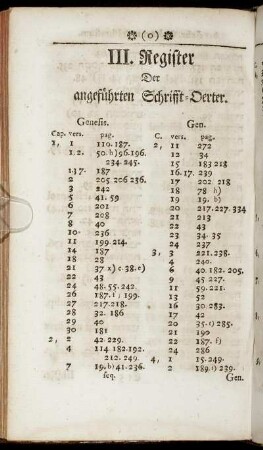 (o)
III. Register
Der
angeführten Schrifft-Oerter.
Genesis.
Cap. vers. pag.
1, 1 110. 187.
1. 2. 50. h) 96. 196.
234. 245.
1-17. 187
2 205. 206 236.
3 242
5 41. 59
6 201
7 208
8 40
10- 236
11 199. 214.
14 187
18 28
21 37 x) c. 38. e)
22 43
24 48. 55. 242.
26 187. i) , 199.
27 217. 218.
28 32. 186
29 40
30 181
2, 2 42. 229.
4 114. 182. 192.
212. 249.
7 19. b) 41. 236.
seq.
Gen.
C. vers. pag.
2, 11 272
12 34
15 183 218
16. 17. 239
17 202. 218
18 78 h)
19 19. b)
20 217. 227. 334
21 213
22 43
23 34. 35
24 237
3, 3 221. 238.
4 240.
6 40. 182. 205.
9 45 227.
11 59. 221.
13 52
16 30. 283.
17 42
20 35. r) 285.
21 190.
22 187. f)
24 286
4, 1 15. 249.
2 189. i) 239.
Gen.